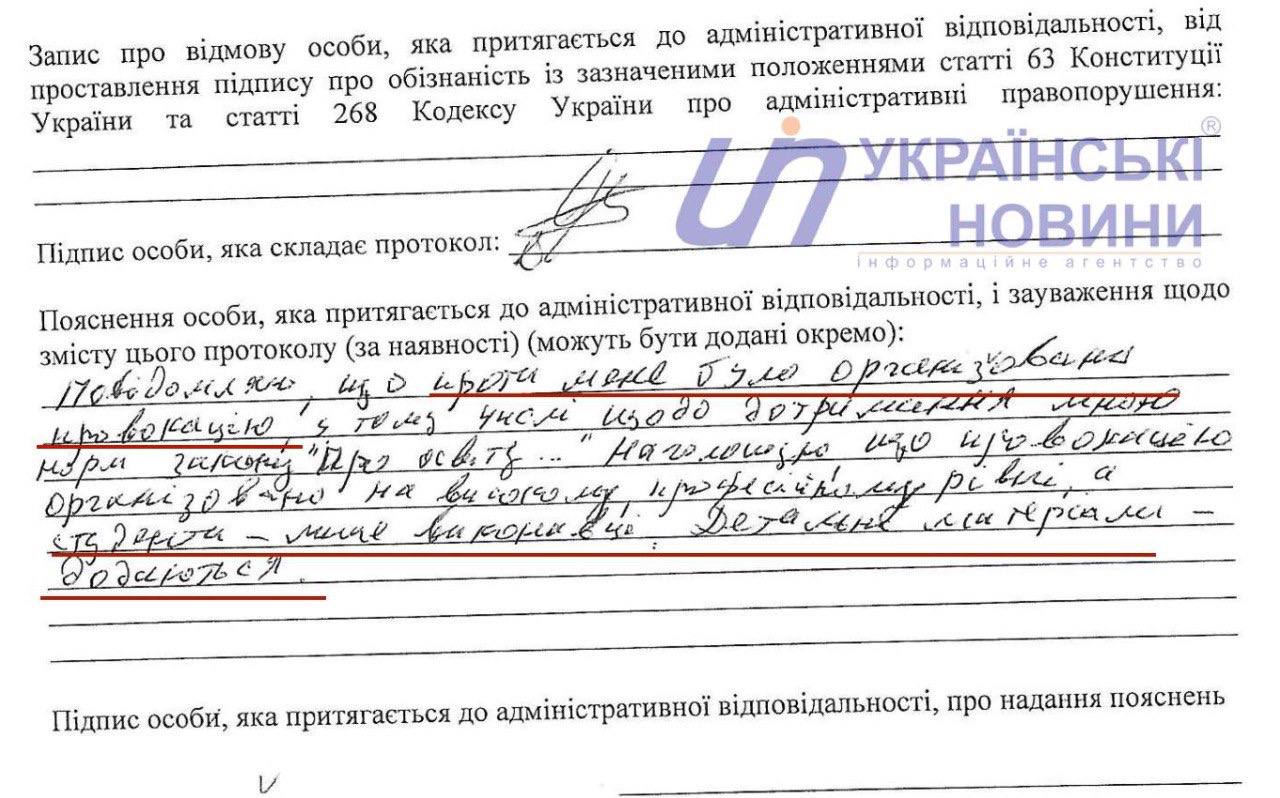 Запис про відмову особи, яка притягається до адміністративної відповідальності, від
проставлення підпису про обізнаність із зазначеними положеннями статті 63 Конституції
України та статті 268 Кодексу України про адміністративні правопорушення:
УКРАЇНСЬКІ
НОВИНИ
інформаційне агентство
Підпис особи, яка складає протокол:
Пояснення особи, яка притягається до адміністративної відповідальності, і зауваження щодо
змісту цього протоколу (за наявності) (можуть бути додані окремо):
Повідомляю, що проти мене було організовано
провокацію, у тому числі щодо дотримання мною
норм закону "Про освіту..." Наголошую що провокацію
організовано на високому, професійному рівні, а
студенти – лише виконавці. Детальні матеріали –
додаються.
Підпис особи, яка притягається до адміністративної відповідальності, про надання пояснень